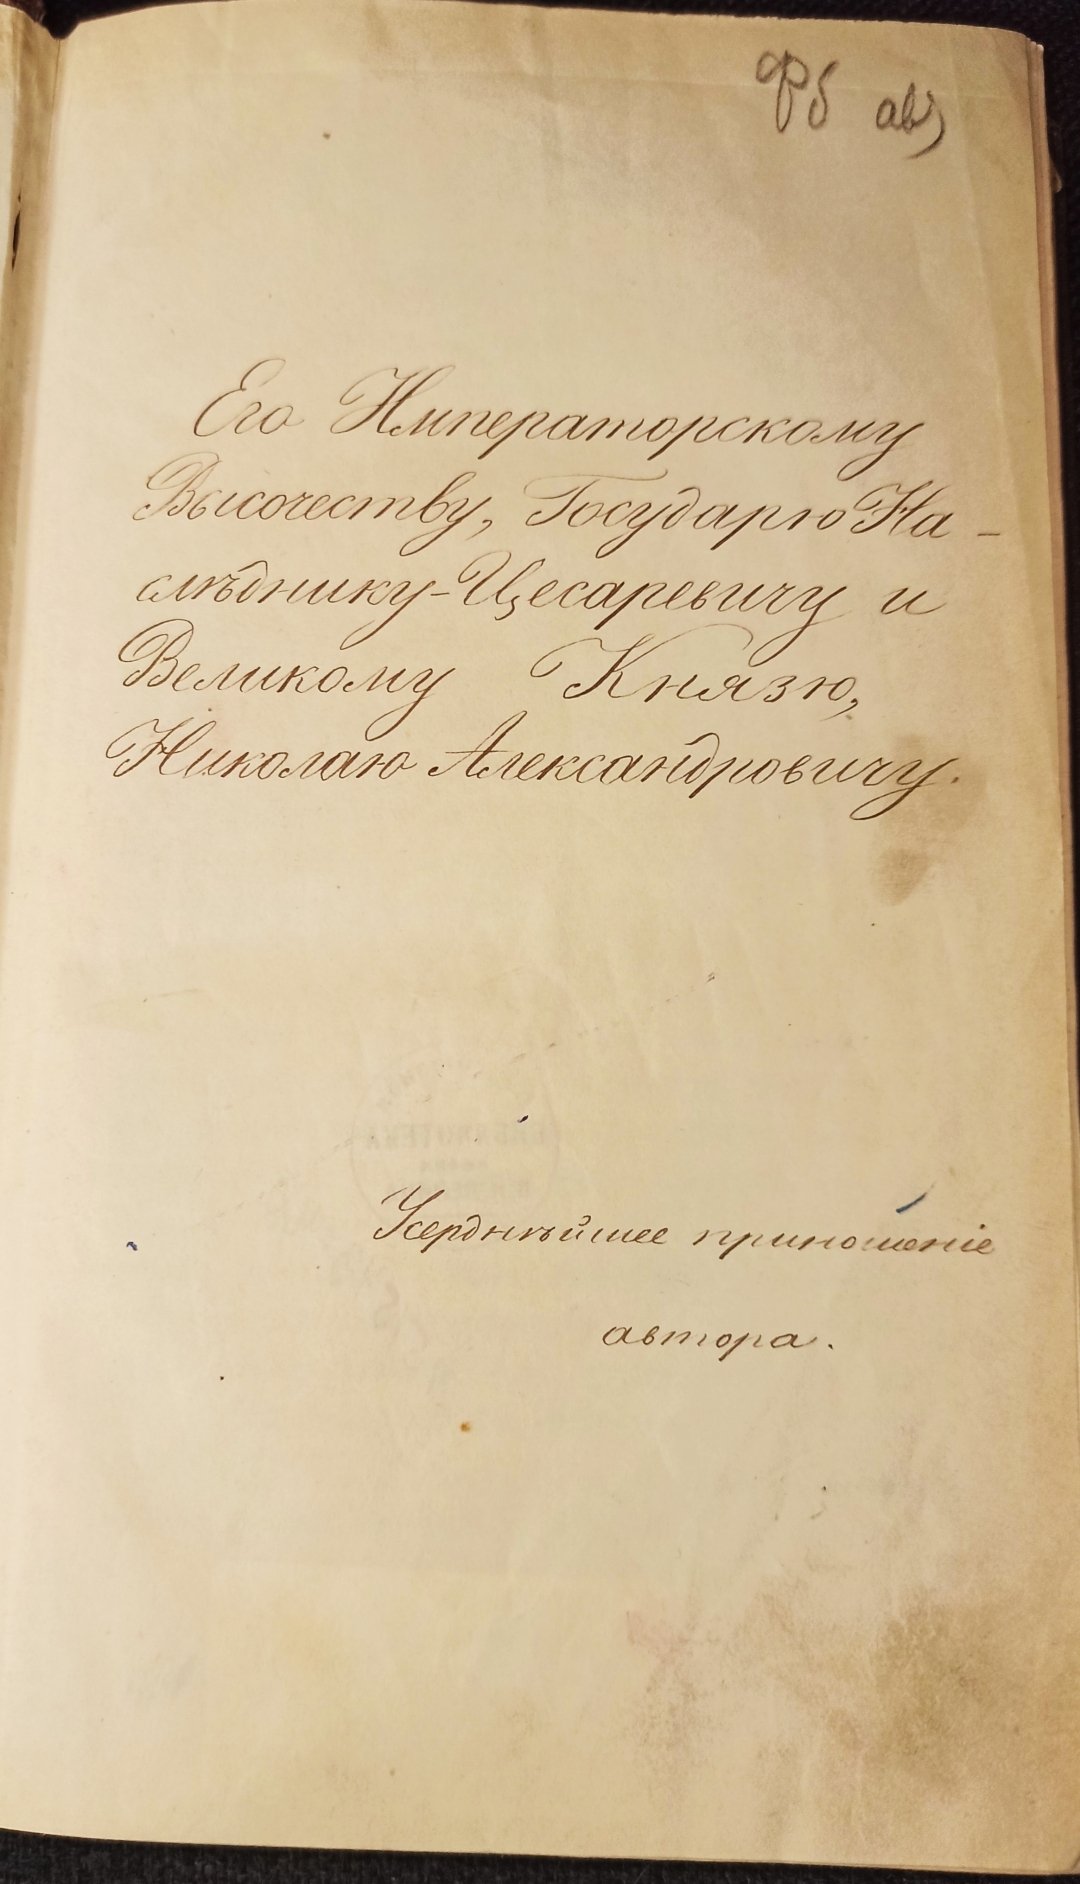 Фб ав
Его Императорскому
Высочеству, Государю На-
слѣднику-Цесаревичу и
Великому Князю,
Николаю Александровичу.
Усерднѣйшее приношеніе
автора.